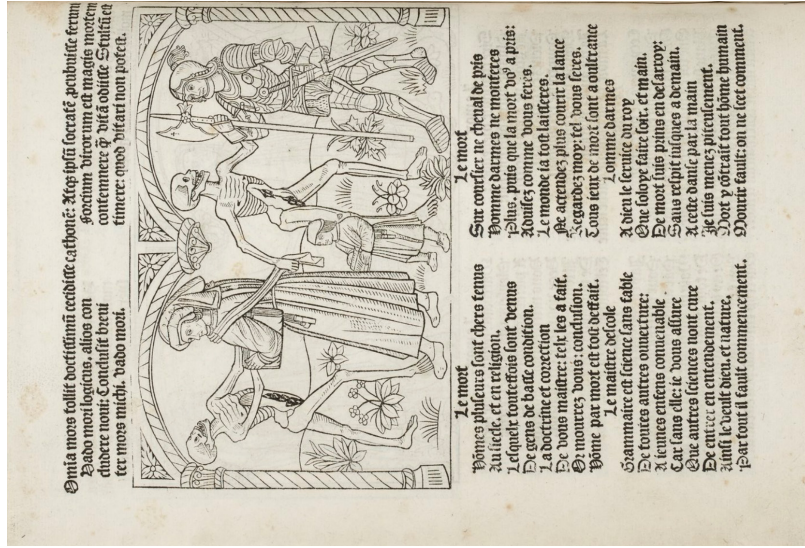 Omia mors tollit doctissimũ cecidisse cathonẽ: Atqȝ ipsũ socratẽ ꝓcubuisse ferunt
Vado mori logicus, alios con
cludere noui: Conclusit breui
ter mors michi. vado mori.
fortium virorum est magis mortem
contemnere ꝙ vitã odisse Stultũ est
timere: quod vitari non potest.
Le mort
Hõmes pluseurs sont chers tenus
Au siecle, et en religion.
Lesquelz touteffois sont venus
De gens de basse condition.
La doctrine et correction
De vous maistre: telz les a fait.
Or mourrez vous: conclusion.
Hõme par mort est tost deffait.
Le maistre descole
Grammaire est science sans fable
De toutes autres ouuerture:
A ieunes enfens conuenable
Car sans elle: ie vous assure
Que autres sciences nont cure
De entrer en entendement.
Ainsi le veult dieu, et nature.
Par tout il fault commencement.
Le mort
Sur coursier ne cheual de pris
Homme darmes ne monteres
Plus, puis que la mort voꝰ a pris:
Auisez comme vous feres.
Le monde ia tost laisseres.
Ne actendez plus courir la lance
Regardez moy: tel vous seres.
Tous ieux de mort sont a oultrance
Lomme darmes
A dieu le seruice du roy
Que soloye faire soir, et main.
De mort suis prins en desarroy:
Sans respit iusques a demain.
A ceste danse par la main
Je suis menez piteusement.
Mort y cõtrait tout hõme humain
Mourir fault: on ne scet comment.